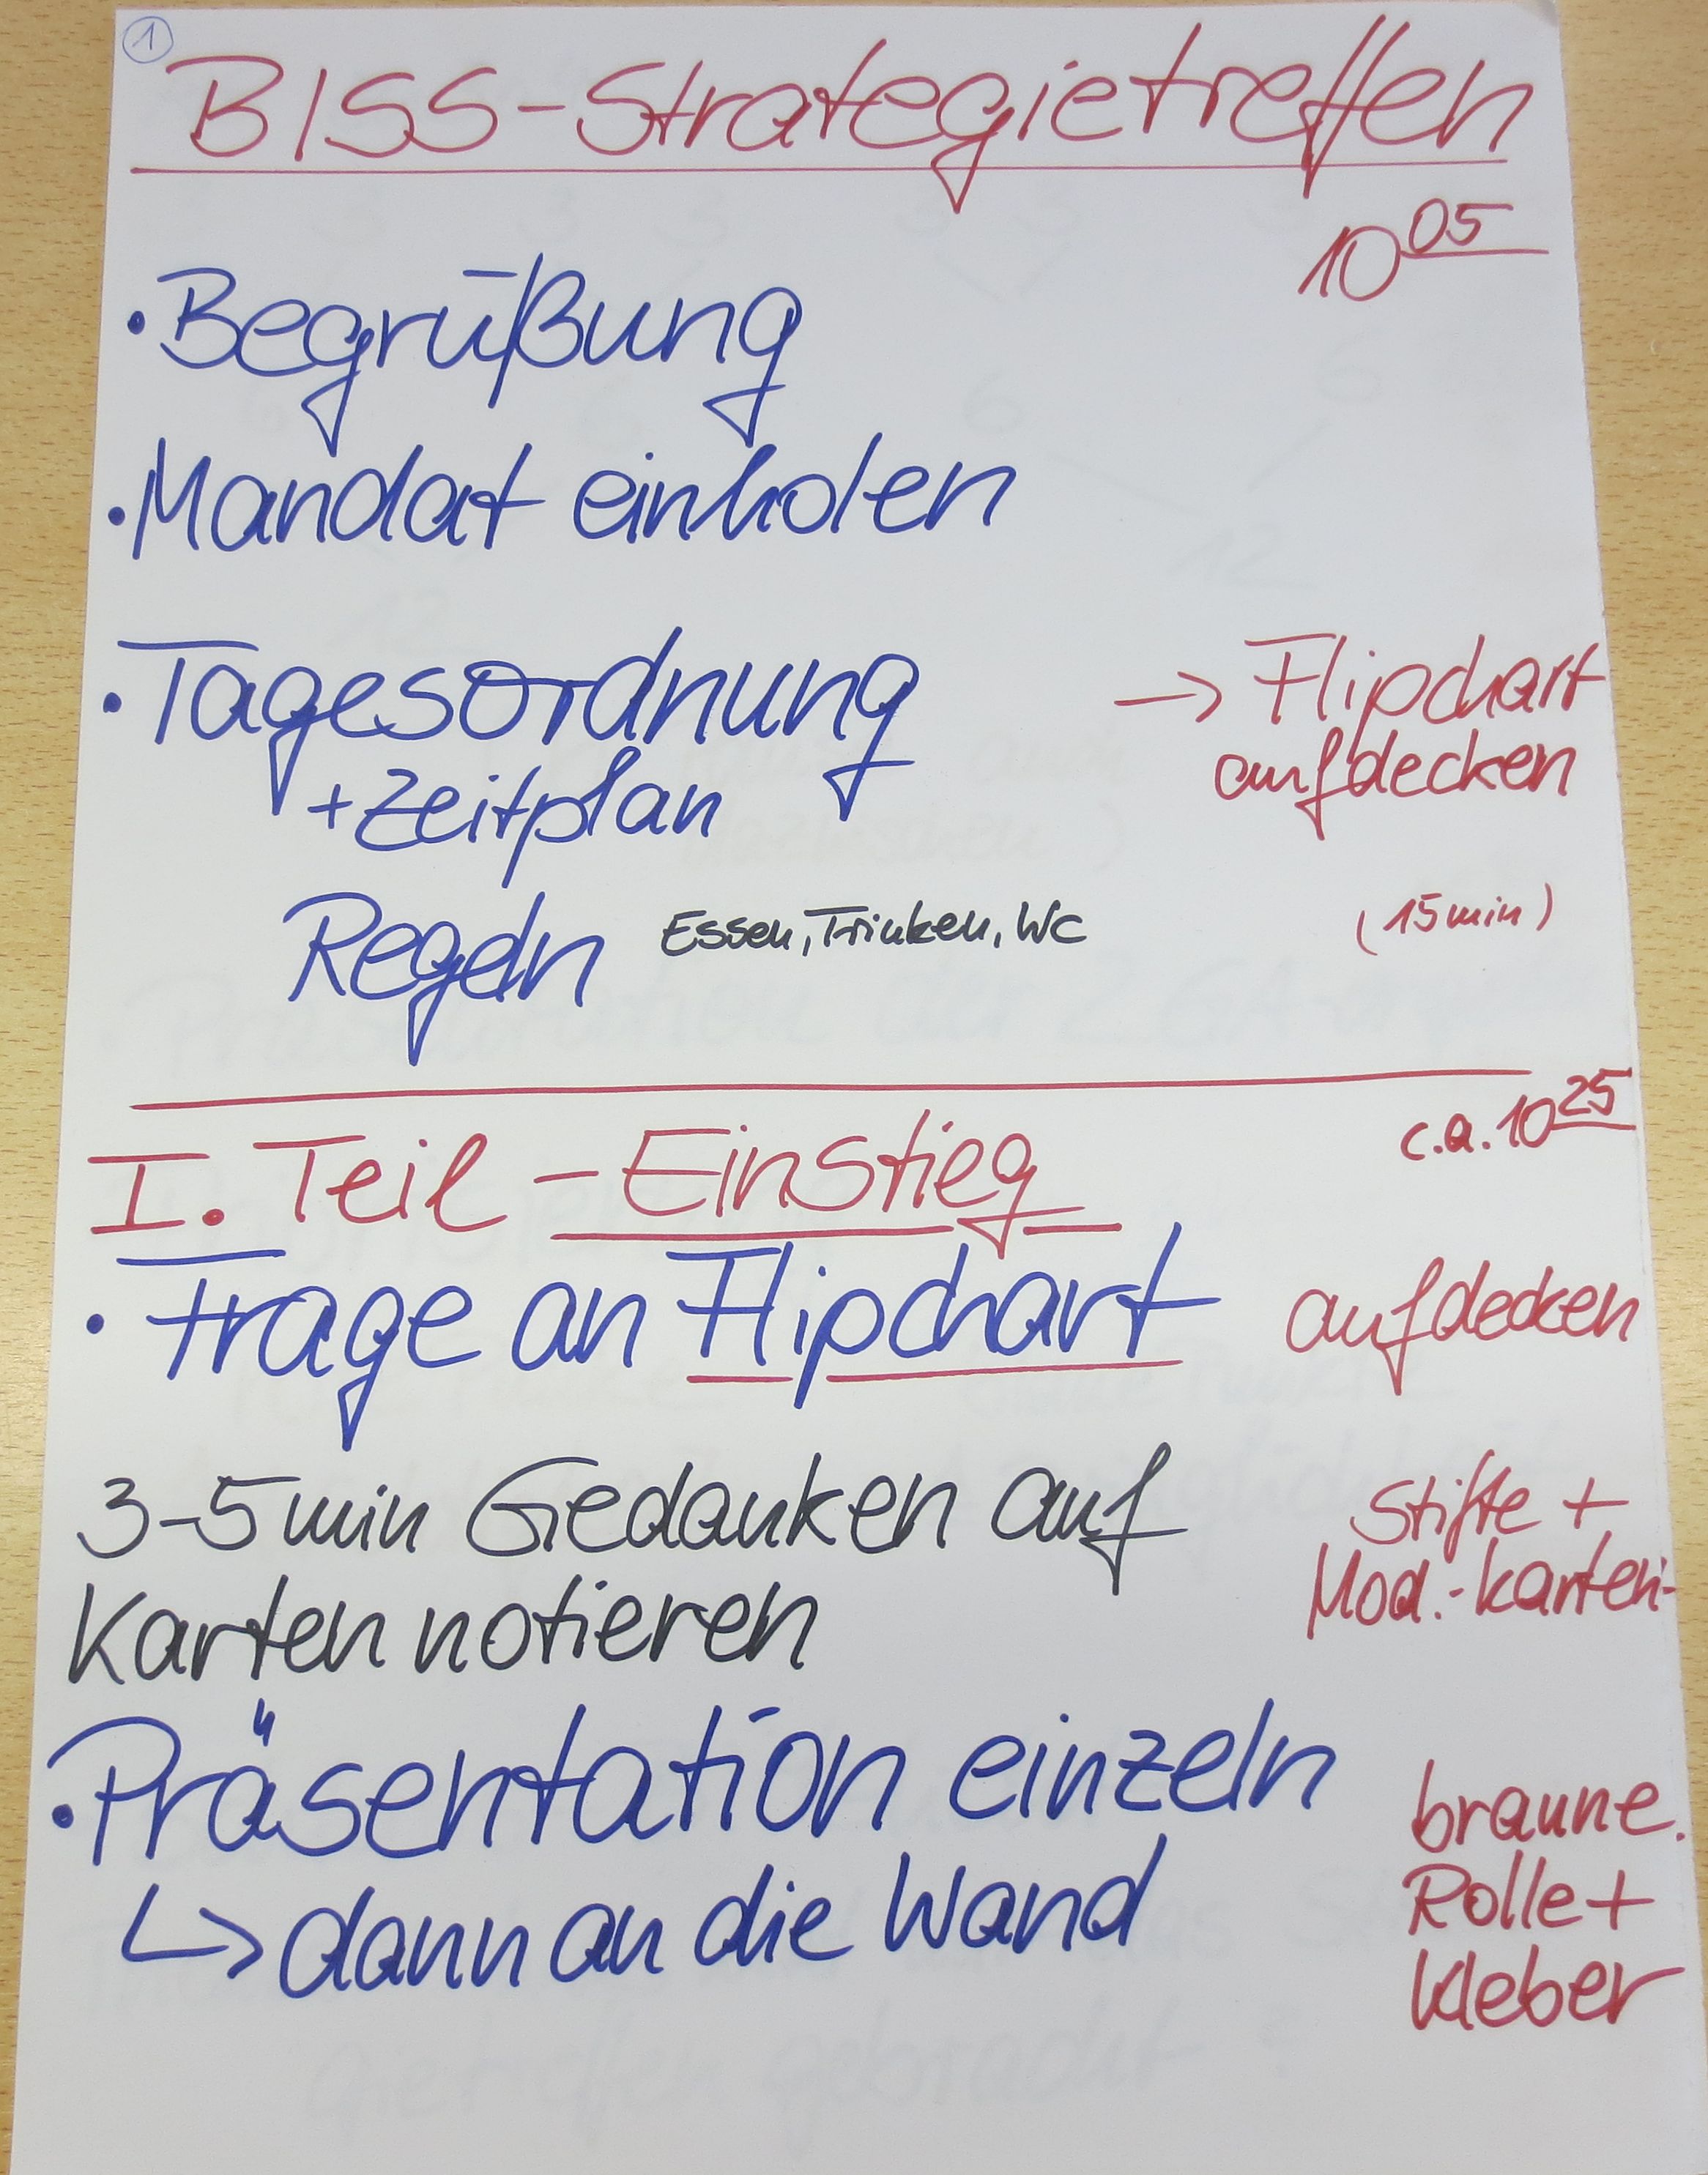 1
BISS-Strategietreffen
10 05
• Begrüßung
• Mandat einholen
• Tagesordnung → Flipchart
+ Zeitplan aufdecken
Regeln Essen, Trinken, WC (15 min)
c.a. 10 25
I. Teil - Einstieg
• Frage an Flipchart aufdecken
3-5 min Gedanken auf Stifte +
Karten notieren Mod.-karten
• Präsentation einzeln braune
↳ dann an die Wand Rolle +
Kleber